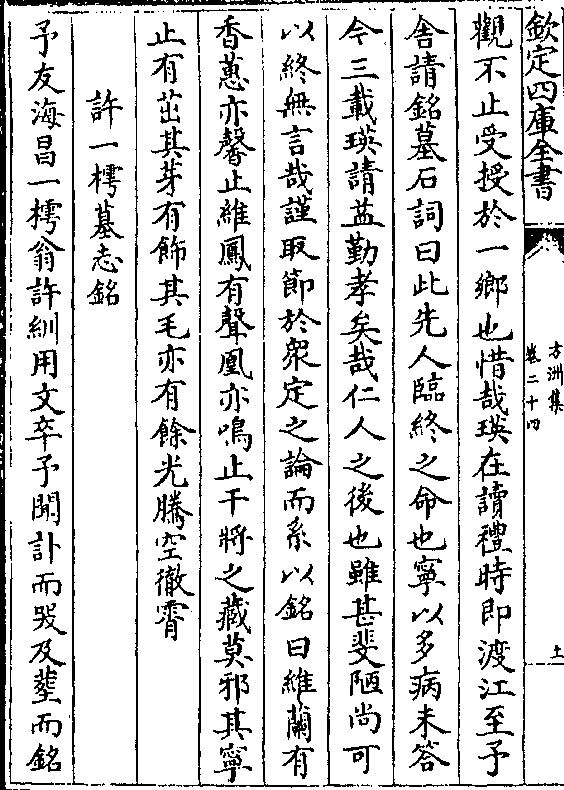 欽定四庫全書
方洲集
卷二十四
十
觀不止受授於一鄉也惜哉瑛在讀禮時即渡江至予
舍請銘墓石詞曰此先人臨終之命也寧以多病未答
今三載瑛請益勤孝矣哉仁人之後也雖甚斐陋尚可
以終無言哉謹取節於衆定之論而系以銘曰維蘭有
香蕙亦馨止維鳳有聲凰亦鳴止干將之藏莫邪其寧
止有茁其芽有飾其毛亦有餘光騰空徹霄
許一樗墓志銘
予友海昌一樗翁許紃用文卒予聞訃而哭及塟而銘